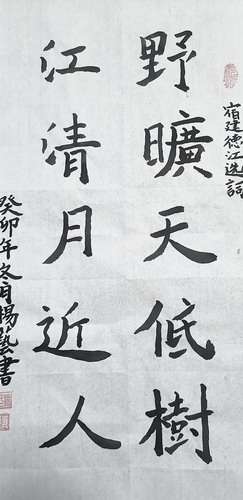 宿建德江选詞
野曠天低樹
江清月近人
癸卯年冬月楊藝書